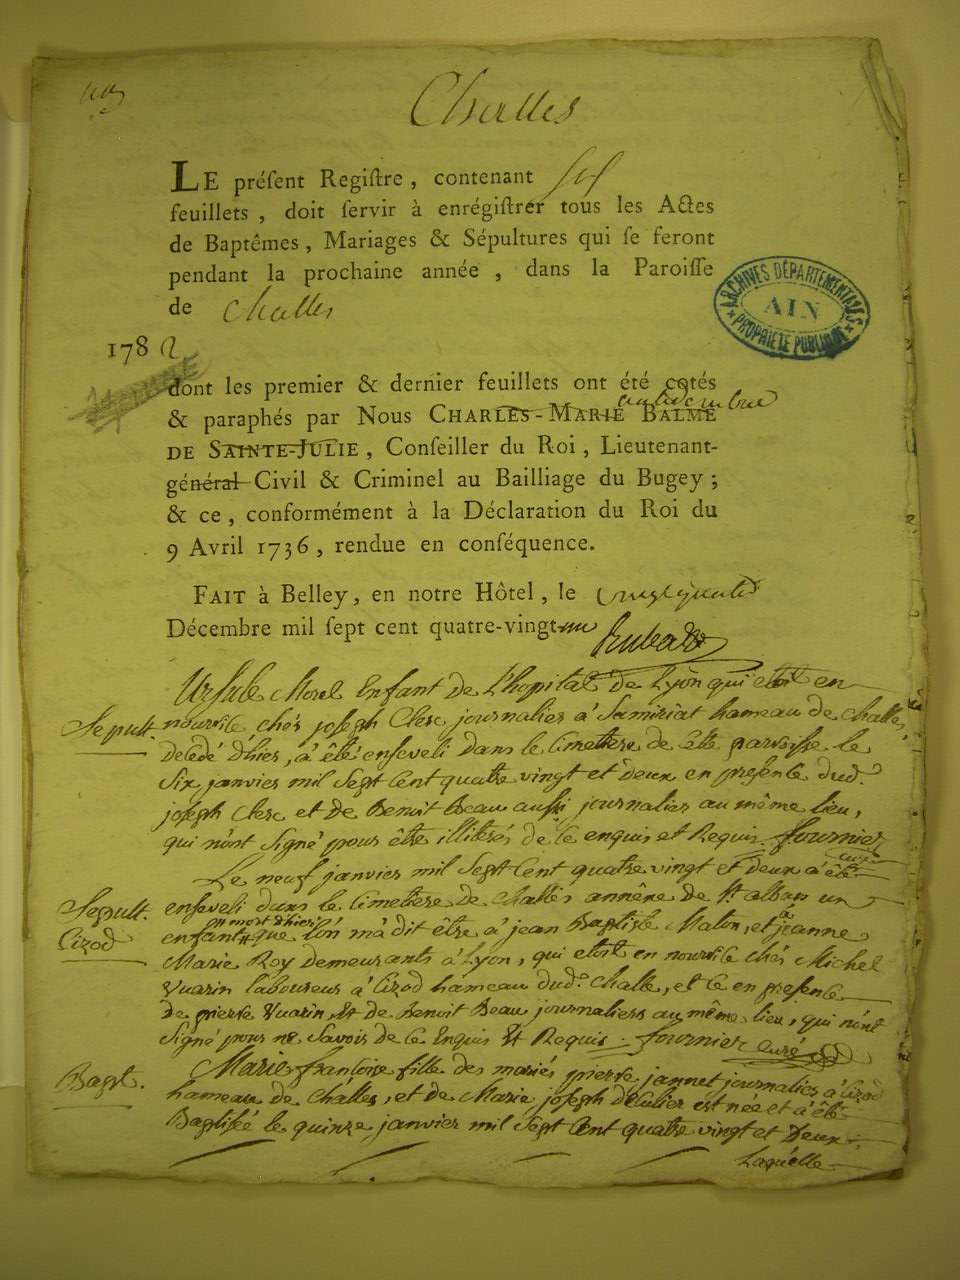 Challes
LE préſent Regiſtre, contenant
feuillets, doit ſervir à enrégiſtrer tous les Actes
de Baptêmes, Mariages & Sépultures qui ſe feront
pendant la prochaine année, dans la Paroiſſe
de Challes
ARCHIVES DÉPARTEMENTALES
AIN
PROPRIÉTÉ PUBLIQUE
178 2
dont les premier & dernier feuillets ont été cotés
& paraphés par Nous CHARLES-MARIE BALME
DE SAINTE-JULIE, Conſeiller du Roi, Lieutenant-
général Civil & Criminel au Bailliage du Bugey;
& ce, conformément à la Déclaration du Roi du
9 Avril 1736, rendue en conſéquence.
FAIT à Belley, en notre Hôtel, le
Décembre mil ſept cent quatre-vingt-un
Ursule Morel Enfant de L'hopital de Lyon qui étoit en
Sepult. nourrice chés joseph Clerc journalier à Samiriat hameau de Challe,
décédé d'hier, à été enseveli dans le Cimettere de cette paroisse le
Six janvier mil Sept Cent quatre vingt et deux en presence dud.
joseph Clerc et de Benoit Beau aussi journalier au même lieu,
qui n'ont Signé pour être illiterés de ce enquis et Requis. fournier
curé
Le neuf janvier mil Sept Cent quatre vingt et deux a été
Sepult. enseveli dans le Cimettere de Challes annêxe de St alban un
Cizod enfant mort d'hier que l'on m'a dit être à jean Baptiste Maton, et à jeanne
Marie Roy demeurants à Lyon, qui etoit en nourrice chés Michel
Vuarin laboureur à Cizod hameau dud. Challe, et ce en presence
de pierre Vuarin Et de Benoit Beau journaliers au même lieu, qui n'ont
Signé pour ne Savoir de ce Enquis Et Requis. fournier curé
Bapt. Marie françoise fille des mariés pierre jannet journalier à Cizod
hameau de Challes, et de Marie joseph est née et à été
Baptisée le quinze janvier mil Sept Cent quatre vingt et Deux.
Laquelle